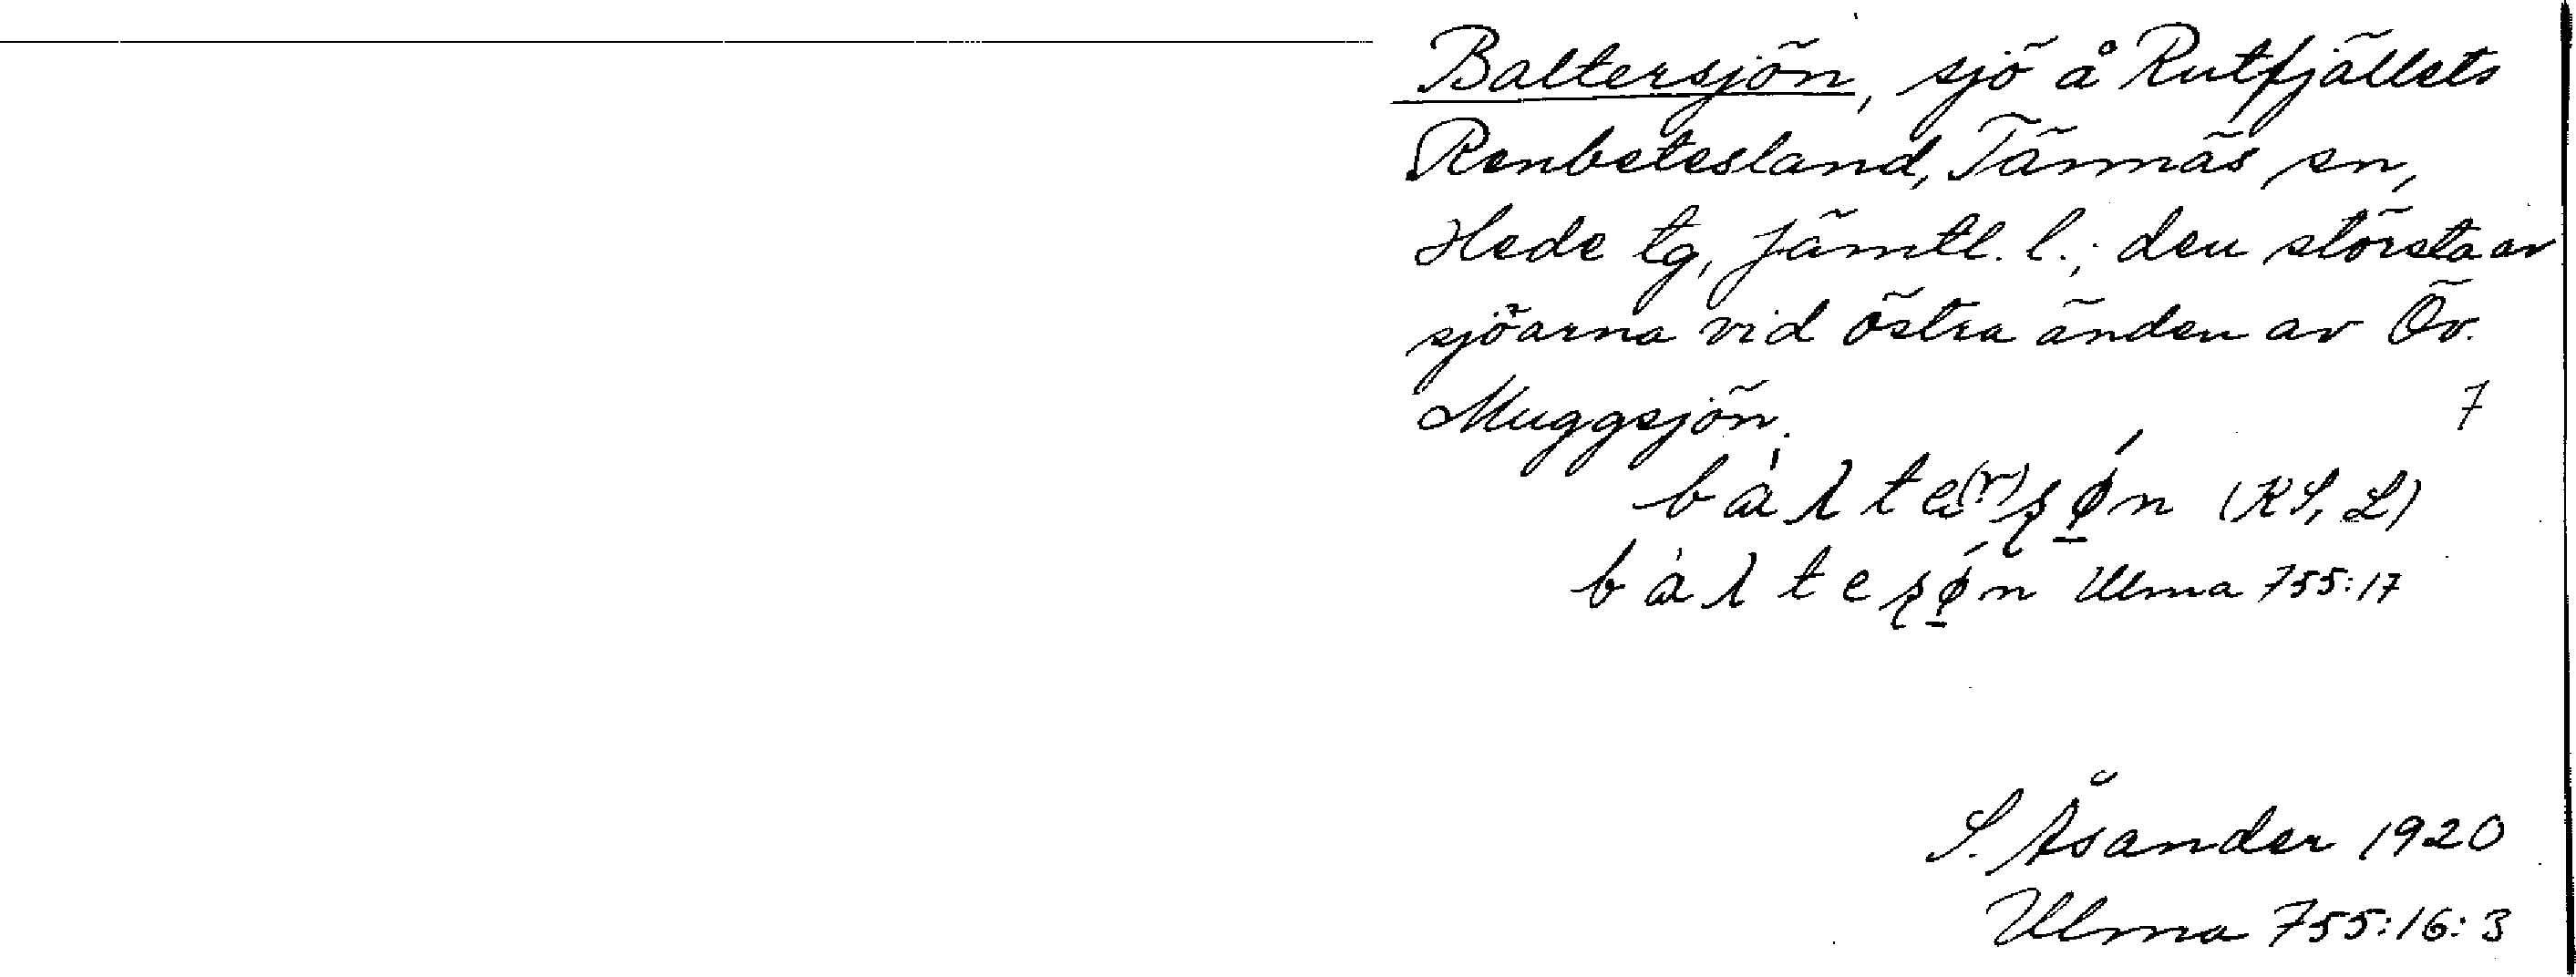 Baltersjön, sjö å Rutfjällets
Renbetesland, Tännäs sn,
Hede tg, Jämtl. l.; den största av
sjöarna vid östra änden av Öv.
Muggsjön.
7
bàlte(r)sǿn (KS, L)
bàltesǿn Ulma 755:17
S. Åsander 1920
Ulma 755:16:3